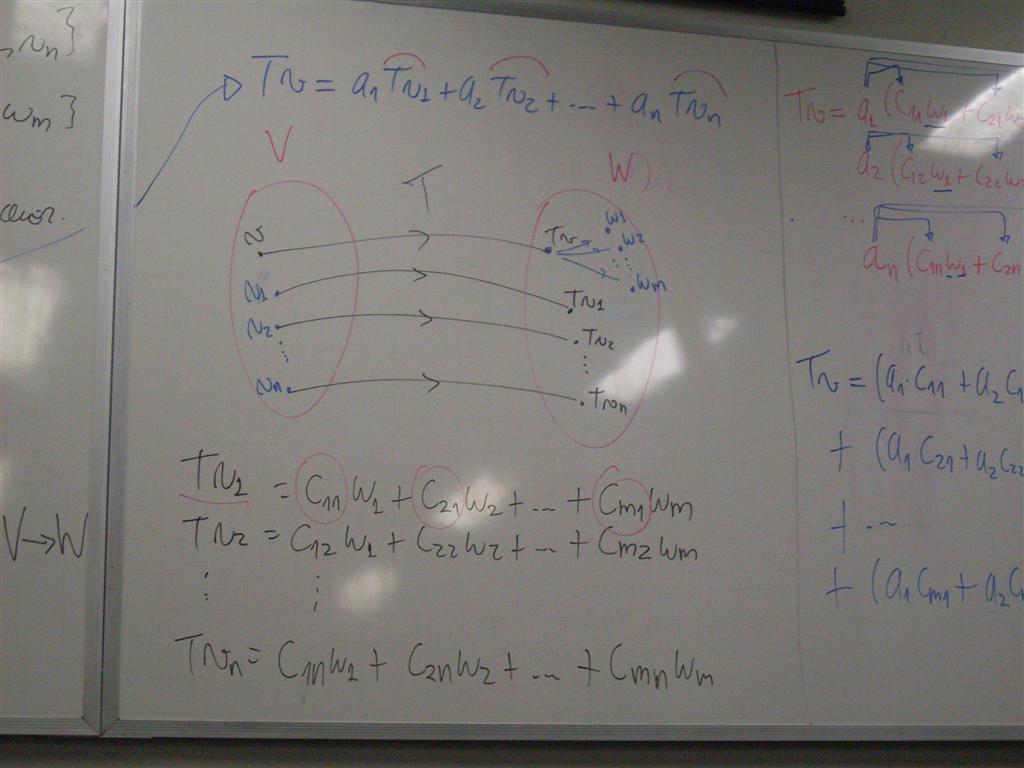 , vn}
wm}
V→W
Tv = a1Tv1 + a2Tv2 + ... + anTvn
V
T
W
v
v1
v2
⋮
vn
Tv
w1
w2
wm
Tv1
Tv2
⋮
Tvn
Tv1 = C11w1 + C21w2 + ... + Cm1wm
Tv2 = C12w1 + C22w2 + ... + Cm2wm
⋮ ⋮
Tvn = C1nw1 + C2nw2 + ... + Cmnwm
Tv = a1(C11w1 + C21w
a2(C12w1 + C22w
...
an(C1nw1 + C2n
Tv = (a1·C11 + a2C1
+ (a1C21 + a2C22
+ ...
+ (a1Cm1 + a2C